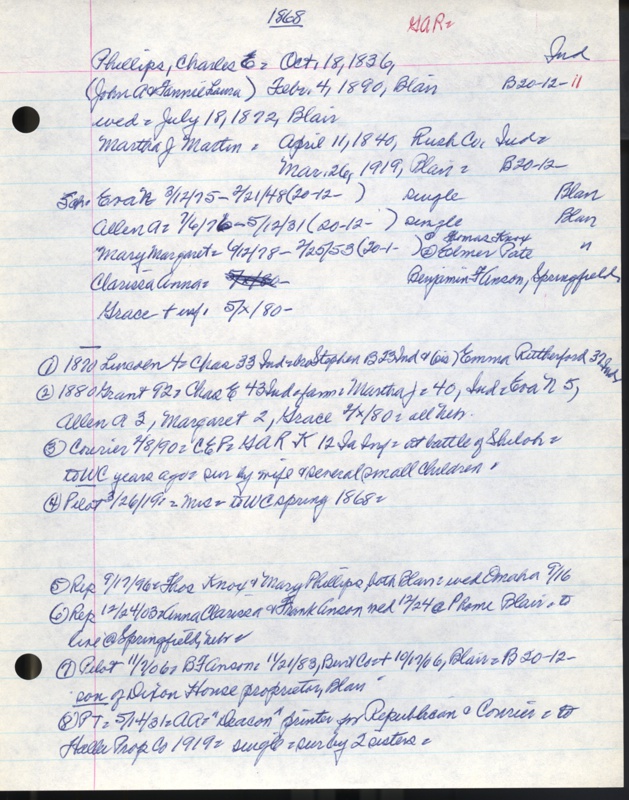 1868
GAR=
Phillips, Charles E = Oct, 18, 1836, Ind
(John A & Fannie Laura) Febr. 4, 1890, Blair B20-12-11
wed = July 18, 1872, Blair
Martha J Martin = April 11, 1840, Rush Co, Ind =
Mar. 26, 1919, Blair = B20-12-
Eva N 3/12/75 - 2/21/48 (20-12- ) single Blair
Allen A = 7/6/76 - 5/12/31 (20-12- ) single Blair
Mary Margaret = 9/12/78 - 2/25/53 (20-1- ) ① Thomas Knox ② Elmer Pate "
Clarissa Anna = 5/x/80- Benjamin F Anson, Springfield
Grace + inf. 5/x/80-
① 1870 Lincoln 4 = Chas 33 Ind = bro Stephen B 23 Ind & (sis) Emma Rutherford 32 Ind
② 1880 Grant 92 = Chas E 43 Ind = farm = Martha J = 40, Ind = Eva N 5,
Allen A 3, Margaret 2, Grace /x/80 = all Neb.
③ Courier 2/8/90 = CEP = GAR K 12 Ia Inf = at battle of Shiloh =
to WC years ago = sur by wife & several small children "
④ Pilot 3/26/19 = Mrs = to WC spring 1868 =
⑤ Rep 9/17/96 = Thos Knox & Mary Phillips both Blair = wed Omaha 9/16
⑥ Rep 12/24/03 = Anna Clarissa & Frank Anson wed 12/24 @ P home Blair = to
live @ Springfield, Nebr =
⑦ Pilot 11/7/06 = BF Anson = 11/21/83, Burt Co + 10/17/06, Blair = B 20-12-
son of Dixon House proprietor, Blair
⑧ PT = 5/14/31 = AA = "Deacon" printer for Republican & Courier = to
Haller Prop Co 1919 = single = sur by 2 sisters =